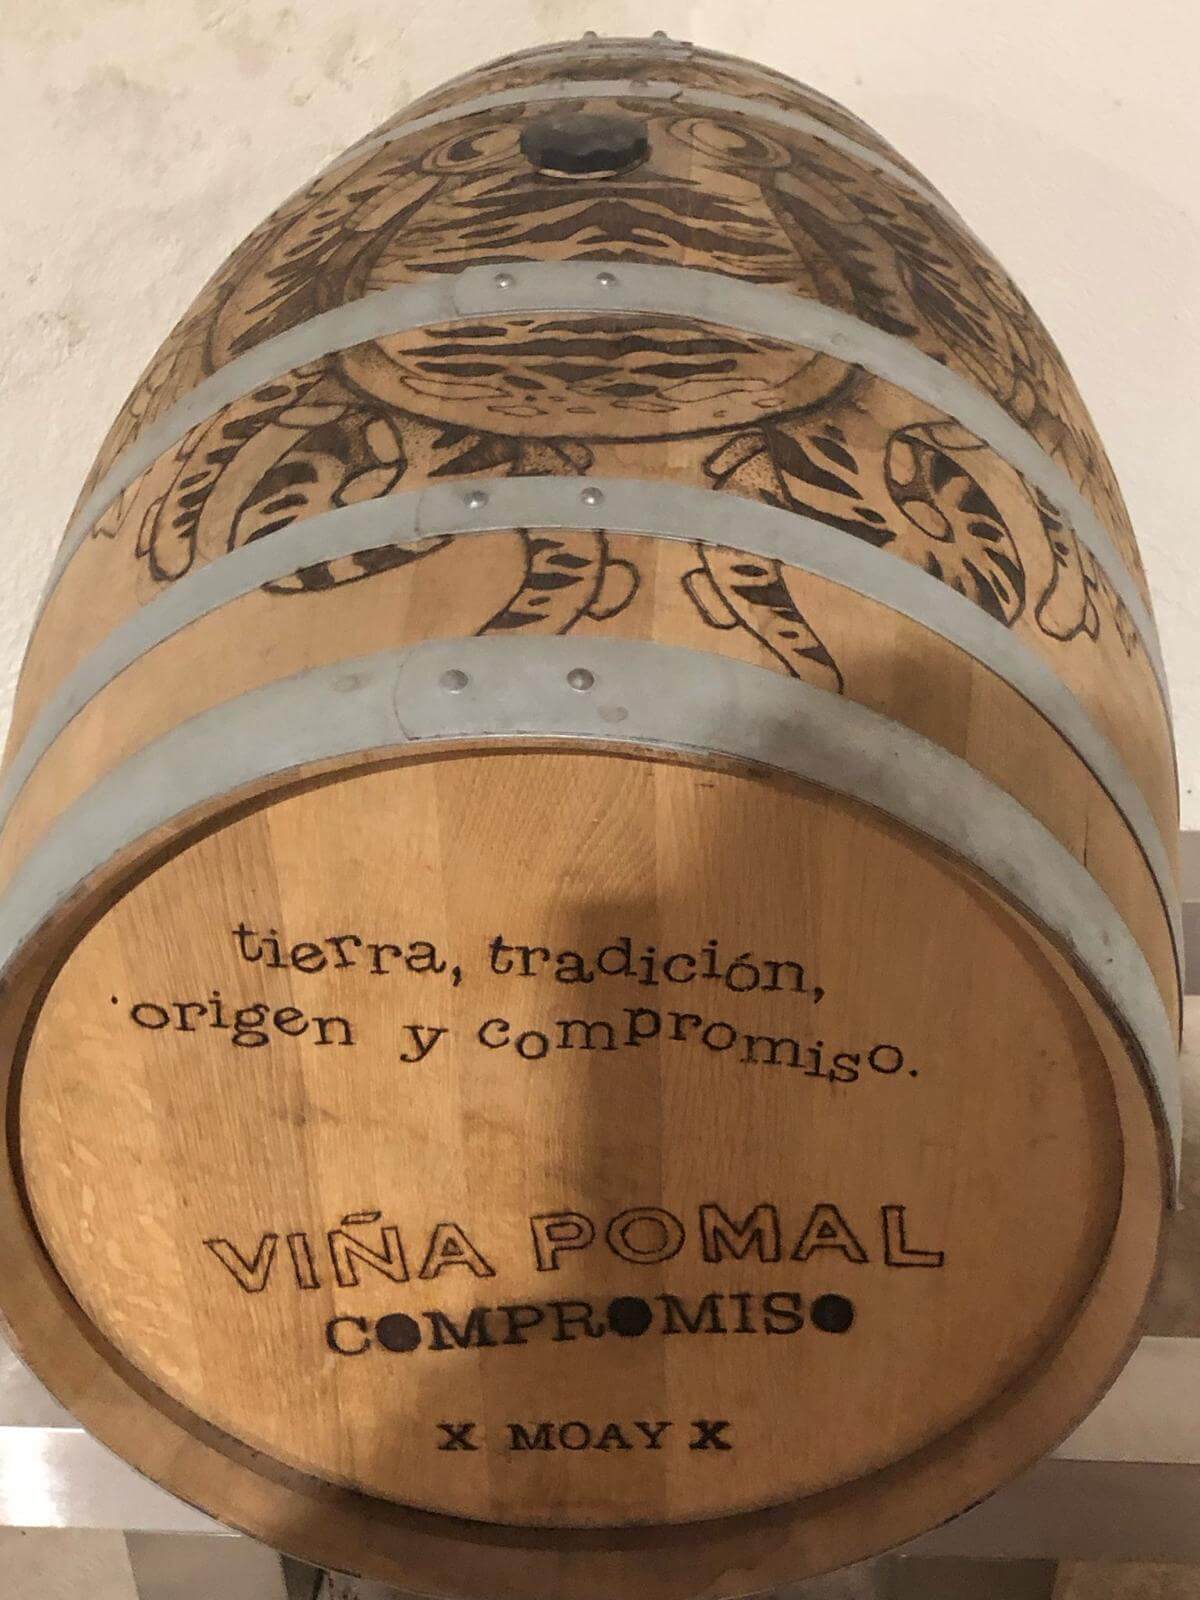 tierra, tradición,
origen y compromiso.
VIÑA POMAL
COMPROMISO
X MOAY X